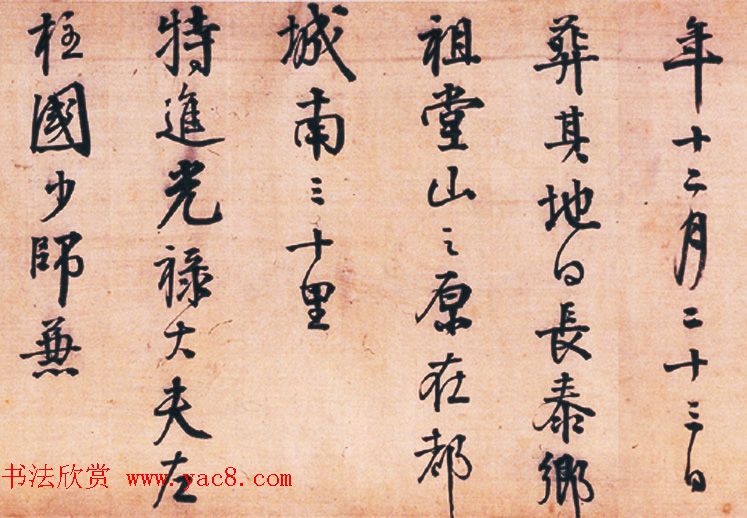 年十二月二十三日
葬其地曰長泰鄉
祖堂山之原在都
城南三十里
特進光禄大夫左
柱國少師兼
书法欣赏 www.yac8.com